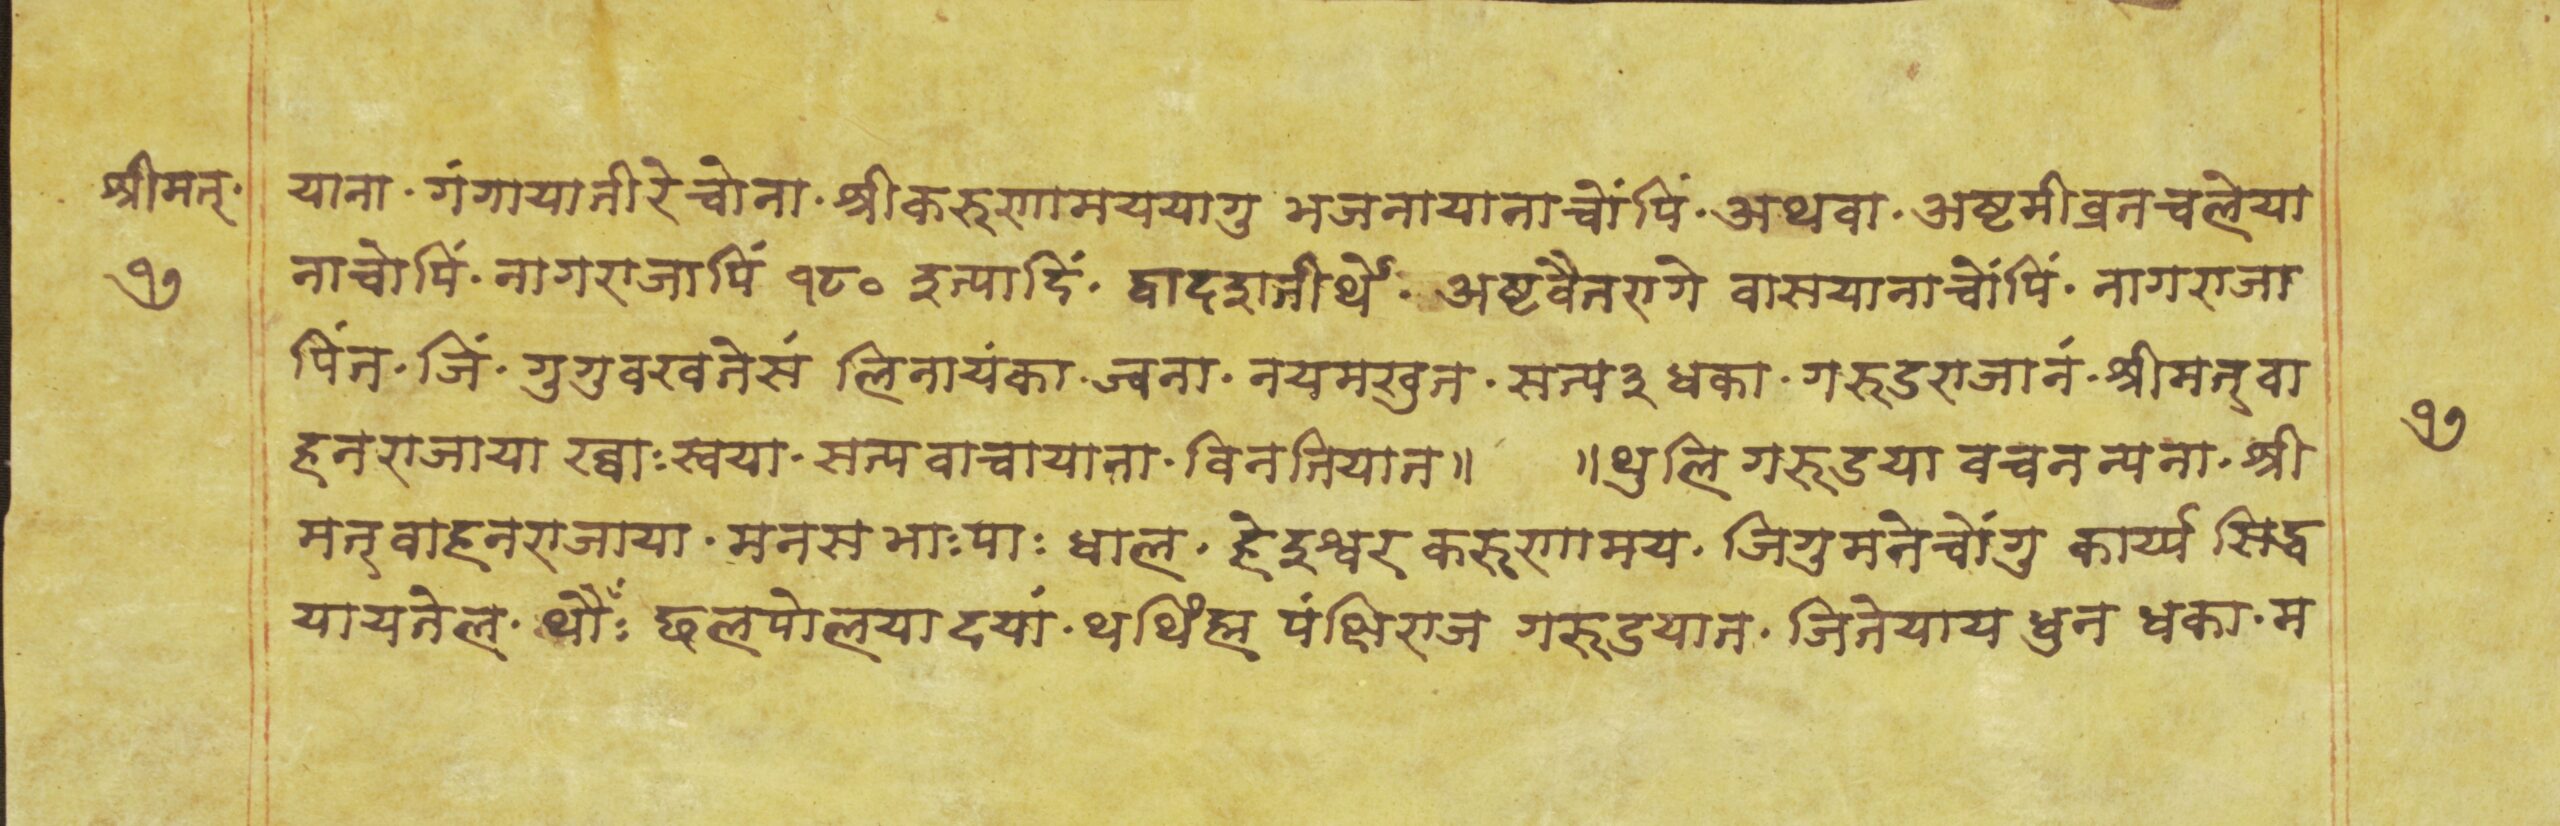 श्रीमत्·
१७
याना· गंगायातीरे चोना· श्रीकरुणामययागु भजनायानाचोंपिं· अथवा· अष्टमीव्रतचलेया
नाचोपिं· नागराजापिं १८० इत्यादिं· द्वादशतीर्थें· अष्टवैतरागे वासयानाचोंपिं· नागराजा
पिंत· जिं· गुगुवखतेसं लिनायंका· ज्वना· नयमखुत· सत्य३ धका· गरुडराजानं· श्रीमत्वा
हनराजाया ख्वाः स्वया· सत्य वाचायाना· विनतियात॥ ॥थुलि गरुडया वचन न्यना· श्री
मत्वाहनराजाया· मनस भाःपाः धाल· हेइश्वर करुणामय· जिगुमनेचोंगु कार्य्य सिद्ध
यायतेल· थौंः छलपोलया दयां· थथिंह्म पंक्षिराज गरुडयात· जितेयाय धुन धका· म
१७